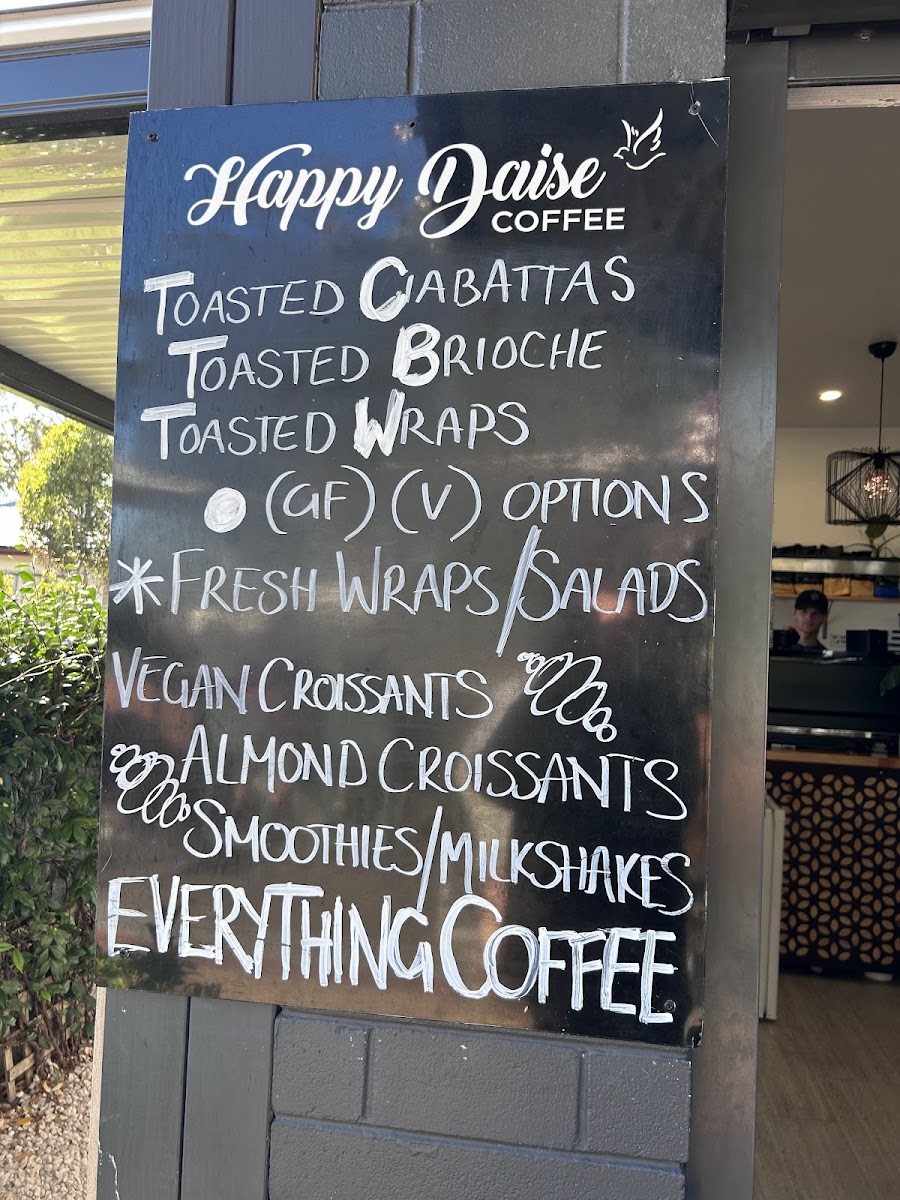 Happy Daise
COFFEE
TOASTED CIABATTAS
TOASTED BRIOCHE
TOASTED WRAPS
● (GF) (V) OPTIONS
* FRESH WRAPS/SALADS
VEGAN CROISSANTS
ALMOND CROISSANTS
SMOOTHIES/MILKSHAKES
EVERYTHING COFFEE